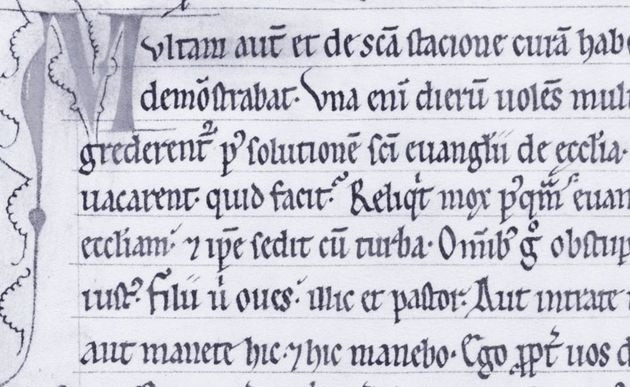 Multam aut̄ et de sc̄a stacione curā hab
demōstrabat· Vna eni̅ dierū uolēs mul
grederent̉ p̉ solutionē sc̄i euangl̅ii de eccl̅ia·
uacarent· quid facit· Reliq̇t mox p̉qm̄ euan
eccl̅iam· ⁊ ip̅e sedit cū turba· Om̅ib; gͦ obstup
iust̉· filii ú oues· illic et pastor· Aut intrate
aut manete hic· ⁊ hic manebo· Ego ꝓpt̉ uos d